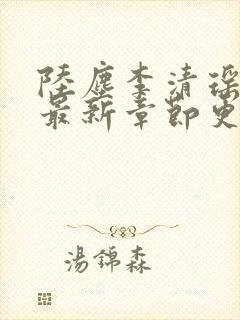 陸塵李清瑶
最新章節更
湯錦森